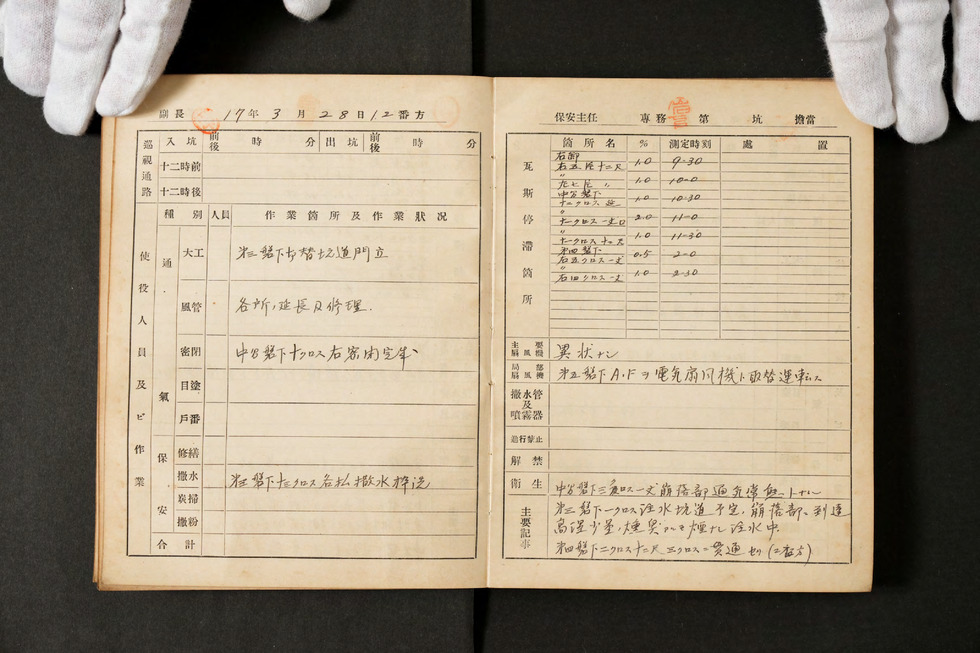 副長 17年3月28日12番方
巡視通路 入坑 前後 時 分 出坑 前後 時 分
十二時前
十二時後
使役人員及ビ作業
種別 人員 作業箇所及作業狀况
通氣保安
大工 第三盤下お替坑道門立
風管 各所ノ延長及修理.
密閉 中分盤下十クロス右密閉完成
目塗
戶番
修繕
撒水 第三盤下十二クロス各払撒水
炭掃
撒粉
合計
保安主任 專務 第 坑 擔當
瓦斯停滯箇所
箇所名 % 測定時刻 處置
右卸
1.0 9-30
〃
1.0 10-0
中分盤下
1.0 10-30
〃
2.0 11-0
〃
1.0 11-30
第四盤下
右五クロス一丈 0.5 2-0
〃
右四クロス一丈 1.0 2-30
主要扇風機 異狀ナシ
局部扇風機 第五盤下A.Fヲ電気扇風機ト取替運転ス
撒水管及噴霧器
通行禁止
解禁
衛生
主要記事
中分盤下三角クロス一丈崩落部通気常無シトナル
第三盤下一クロス注水坑道予定ノ崩落部ニ到達
高温少量ノ煙異 煙ナシ注水中.
第四盤下二クロス十二尺三クロスニ貫通セリ(二番方)